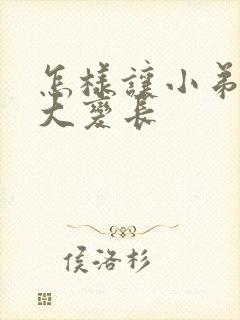 怎样讓小弟
大變長
侯洛杉